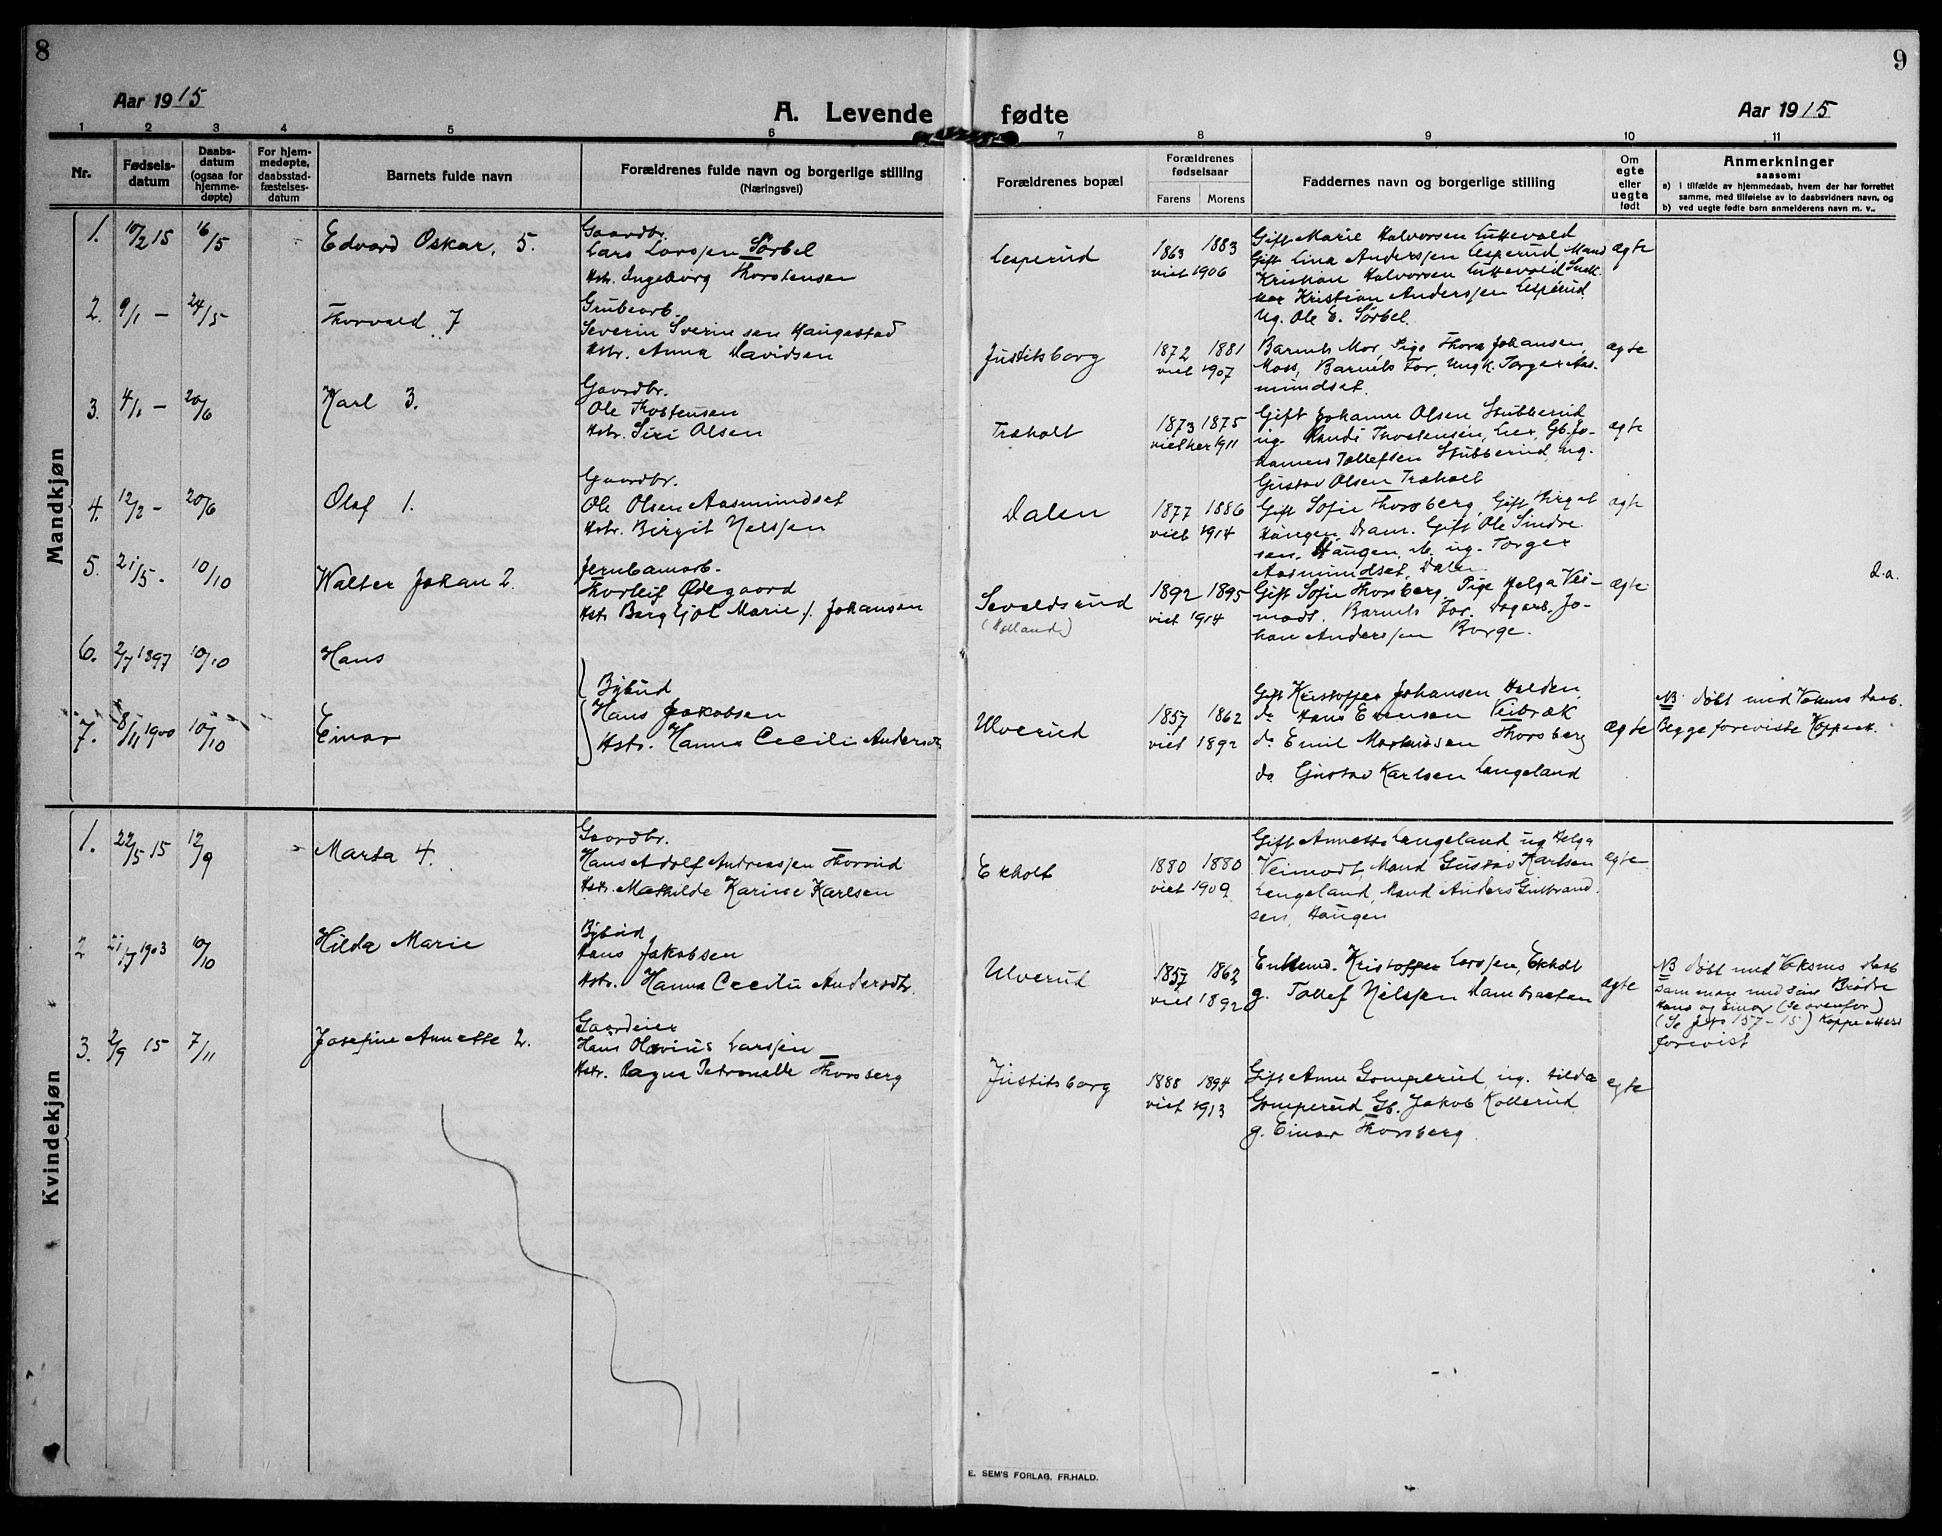 8
9
Aar 1915
A. Levende fødte
Aar 1915
1 2 3 4 5 6 7 8 9 10 11
Nr.
Fødsels-
datum
Daabs-
datum
(ogsaa for
hjemme-
døpte)
For hjem-
medøpte,
daabsstad-
fæstelses-
datum
Barnets fulde navn
Forældrenes fulde navn og borgerlige stilling
(Næringsvei)
Forældrenes bopæl
Forældrenes
fødselsaar
Farens Morens
Faddernes navn og borgerlige stilling
Om
egte
eller
uegte
født
Anmerkninger
saasom:
a) I tilfælde av hjemmedaab, hvem der har forrettet
samme, med tilføielse av to daabsvidners navn, og
b) ved uegte fødte barn anmelderens navn m. v..
Mandkjøn
1. 10/2 15 16/5 Edvard Oskar, 5.
Gaardbr.
Lars Larssen Sørbel
Hstr. Ingeborg Thorstensen
Lesperud
1863 1883
viet 1906
Gift Marie Halvorsen Luttevold
Gift Lina Anderssen Lesperud, Mand
Kristian Halvorsen Luttevold
Kristian Anderssen Lesperud
Ug. Ole E. Sørbel.
ægte
2. 9/1 - 24/5 Thorvald 7
Grubearb.
Severin Sverinsen Haugestad
Hstr. Anna Davidsen
Justitsborg
1872 1881
viet 1907
Barnets Mor, Pige Thora Johansen,
Moss, Barnets Far, Ungk. Torger Aas-
mundset.
ægte
3. 4/1 - 20/6 Karl 3.
Gaardbr.
Ole Thostensen
Hstr. Siri Olsen
Træholt
1873 1875
viet her 1911
Gift Johanne Olsen Stubberud
ug. Randi Thostensen, Lier, Gb. Jo-
hannes Tollefsen Stubberud, ug.
Gustav Olsen Træholt
ægte
4. 12/2 - 20/6 Olaf 1.
Gaardbr.
Ole Olsen Aasmundset
Hstr. Birgit Nelssen
Dalen
1877 1886
viet 1914
Gift Sofie Thorsberg, Gift Birgit
Haugen, Dram. Gift Ole Sindre-
sen, Haugen, ug. Torger
Aasmundset, Dalen
ægte
5. 21/5 - 10/10 Walter Johan 2.
Jernbanearb.
Thorleif Ødegaard
Hstr. Bergljot Marie f. Johansen
Sevaldsrud
1892 1895
viet 1914
Gift Sofie Thorsberg, Pige Helga Vei-
modt. Barnets Far, Dagarb. Jo-
han Anderssen Borge.
ægte
d.a.
6. 2/7 1897 10/10 Hans
7. 8/11 1900 10/10 Einar
Bybud
Hans Jakobsen
Hstr. Hanna Cecilie Andersdtr
Ulverud
1857 1862
viet 1892
Gift Kristoffer Johansen Halden
do Hans Evensen Veibræk
do Emil Martinsen Thorsberg
do Gustav Karlsen Langeland
ægte
NB døbt med Voksnes Daab.
Begge foreviste Koppeat.
Kvindekjøn
1. 22/5 15 12/9 Marta 4.
Gaardbr.
Hans Adolf Andreassen Thorrud
Hstr. Mathilde Karine Karlsen
Ekholt
1880 1880
viet 1909
Gift Annette Langeland, ug Helga
Veimodt, Mand Gustav Karlsen
Langeland, Mand Anders Gulbrand-
sen, Haugen
ægte
2 21/7 1903 10/10 Hilda Marie
Bybud
Hans Jakobsen
Hstr. Hanna Cecilie Andersdtr.
Ulverud
1857 1862
viet 1892
Enkemd. Kristoffer Larssen, Ekholt
g. Tollef Nelssen Dambraaten
ægte
NB døbt med Voksnes Daab
sammen med sine Brødre
Hans og Einar (se ovenfor)
(Se 157-15) Koppeattest
forevist
3. 2/9 15 7/11 Josefine Annette 2.
Gaardeier
Hans Olavius Larssen
Hstr. Ragna Petronelle Thorsberg
Justitsborg
1888 1894
viet 1913
Gift Anne Gomperud, ug. Hilda
Gomperud Gb. Jakob Kollerud
g. Einar Thorsberg.
ægte
E. SEM'S FORLAG, FR.HALD.